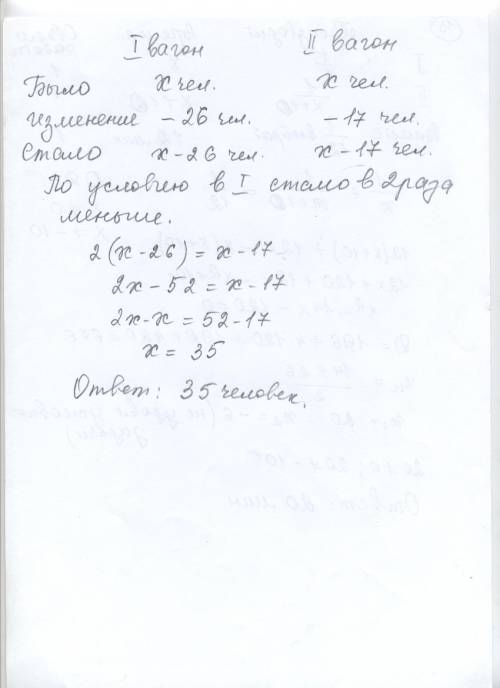 I вагон II вагон
Было x чел. x чел.
изменение – 26 чел. – 17 чел.
Стало x-26 чел. x-17 чел.
По условию в I стало в 2 раза
меньше.
2(x-26) = x-17
2x-52 = x-17
2x-x = 52-17
x = 35
Ответ: 35 человек.